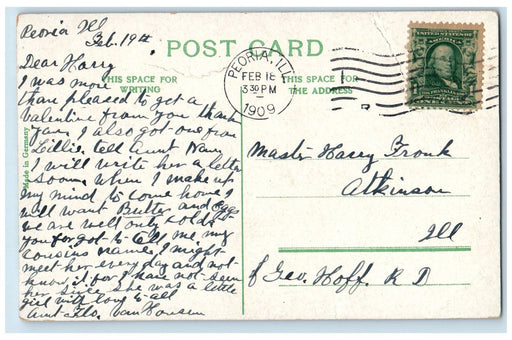 Peoria Ill
Feb. 19th
POST CARD
THIS SPACE FOR
WRITING
THIS SPACE FOR
THE ADDRESS
PEORIA, ILL.
FEB 18
3 30 PM
1909
Made in Germany
Dear Harry
I was more
than pleased to get a
valentine from you thank
you. I also got one from
Lillie. tell Aunt Nan
I will write her a letter
soon. when I make up
my mind to come home I
will want Butter and Eggs
we are well only colds
you forgot to tell me my
cousins name, I might
meet her every day and not
know it. for I have not seen
her since she was a little
girl with love to all
Aunt Flo. Van Housen
Master Harry Fronk
Atkinson
Ill
Geo. Hoff. R D